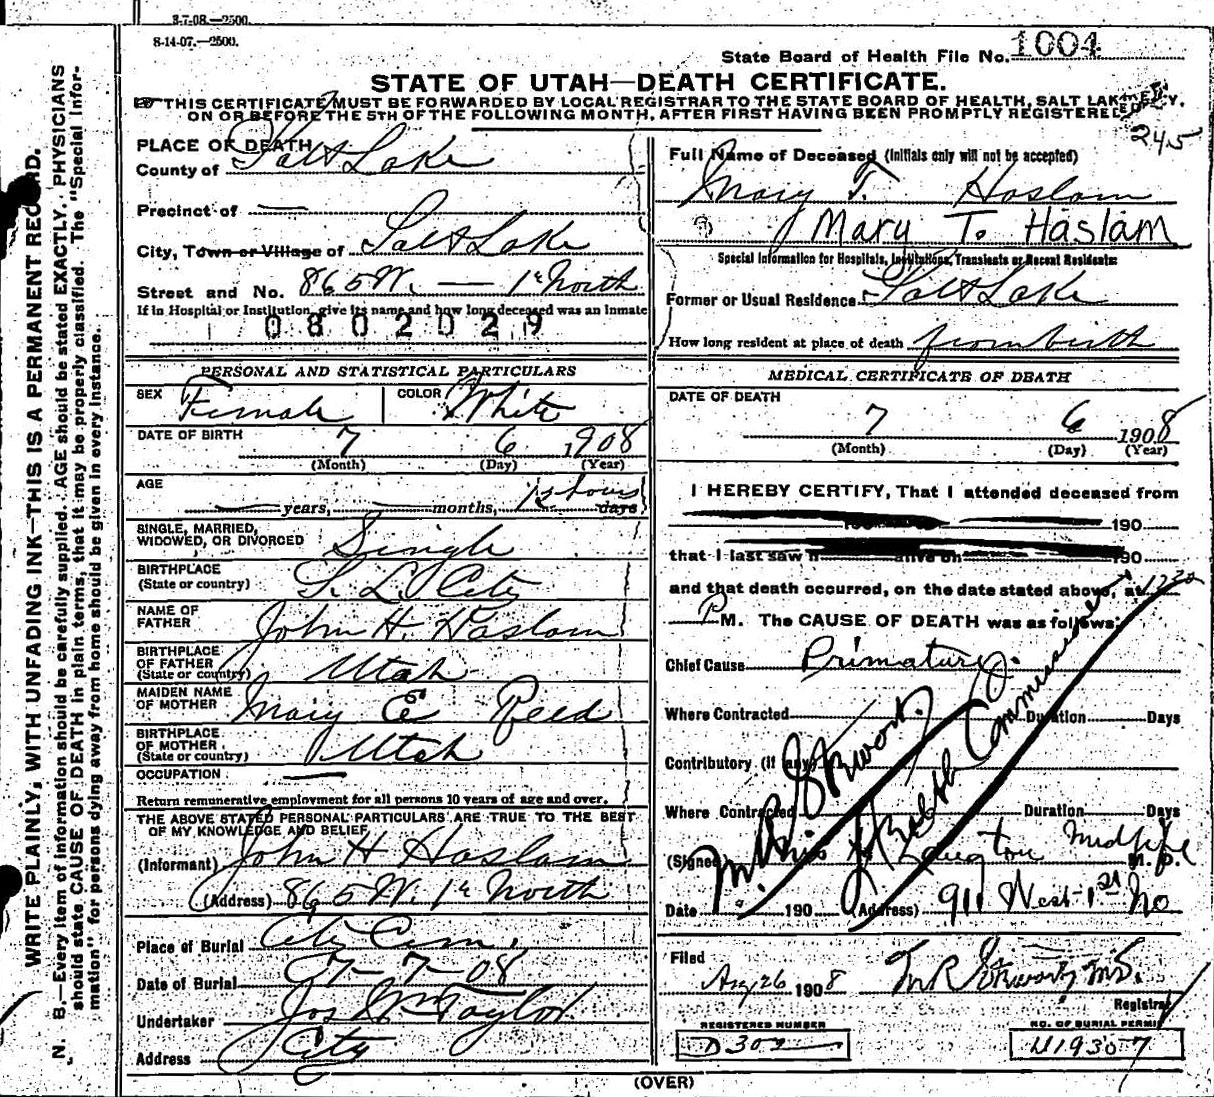 8-7-08.—2500.
8-14-07.—2500.
State Board of Health File No. 1004
STATE OF UTAH—DEATH CERTIFICATE.
THIS CERTIFICATE MUST BE FORWARDED BY LOCAL REGISTRAR TO THE STATE BOARD OF HEALTH, SALT LAKE CITY,
ON OR BEFORE THE 5TH OF THE FOLLOWING MONTH, AFTER FIRST HAVING BEEN PROMPTLY REGISTERED.
245
WRITE PLAINLY, WITH UNFADING INK—THIS IS A PERMANENT RECORD.
N. B.—Every item of information should be carefully supplied. AGE should be stated EXACTLY. PHYSICIANS
should state CAUSE OF DEATH in plain terms, that it may be properly classified. The "Special Infor-
mation" for persons dying away from home should be given in every instance.
PLACE OF DEATH
County of Salt Lake
Precinct of —
City, Town or Village of Salt Lake
Street and No. 865 W. — 1st North
If in Hospital or Institution, give its name and how long deceased was an inmate
0802029
PERSONAL AND STATISTICAL PARTICULARS
SEX Female COLOR White
DATE OF BIRTH 7 6 1908
(Month) (Day) (Year)
AGE
— years, — months, hours days
SINGLE, MARRIED,
WIDOWED, OR DIVORCED Single
BIRTHPLACE
(State or country) S. L. City
NAME OF
FATHER John H. Haslam
BIRTHPLACE
OF FATHER
(State or country) Utah
MAIDEN NAME
OF MOTHER Mary E Reed
BIRTHPLACE
OF MOTHER
(State or country) Utah
OCCUPATION —
Return remunerative employment for all persons 10 years of age and over.
THE ABOVE STATED PERSONAL PARTICULARS ARE TRUE TO THE BEST
OF MY KNOWLEDGE AND BELIEF
(Informant) John H Haslam
(Address) 865 W. 1st North
Place of Burial City Cem.
Date of Burial 7-7-08
Undertaker Jos Wm Taylor
Address City
Full Name of Deceased (Initials only will not be accepted)
Mary T. Haslam
Mary T. Haslam
Special Information for Hospitals, Institutions, Transients or Recent Residents:
Former or Usual Residence Salt Lake
How long resident at place of death from birth
MEDICAL CERTIFICATE OF DEATH
DATE OF DEATH
7 6 1908
(Month) (Day) (Year)
I HEREBY CERTIFY, That I attended deceased from
190
that I last saw h alive on 190
and that death occurred, on the date stated above, at 12 30
P M. The CAUSE OF DEATH was as follows:
Chief Cause Primature
Where Contracted Duration Days
Contributory (if any)
Where Contracted Duration Days
M. R. Stewart.
Health Commissioner
(Signed) Langton Midwife M. D.
Date 190 (Address) 911 West 1st No
Filed
Aug 26 1908 M R Stewart M.D.
Registrar
REGISTERED NUMBER
D 302
NO. OF BURIAL PERMIT
U19307
(OVER)